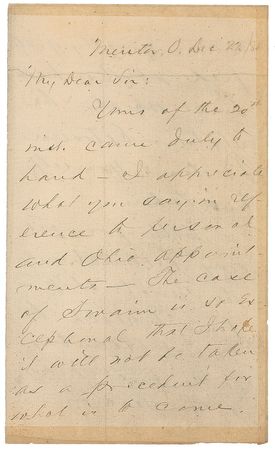 Mentor, O. Dec 22/80
My Dear Sir:
Yours of the 20th
inst. came duly to
hand – I appreciate
what you say in ref
erence to personal
and Ohio appoint
ments – The case
of Swaim is so ex
ceptional that I hope
it will not be taken
as a precedent for
what is to come.